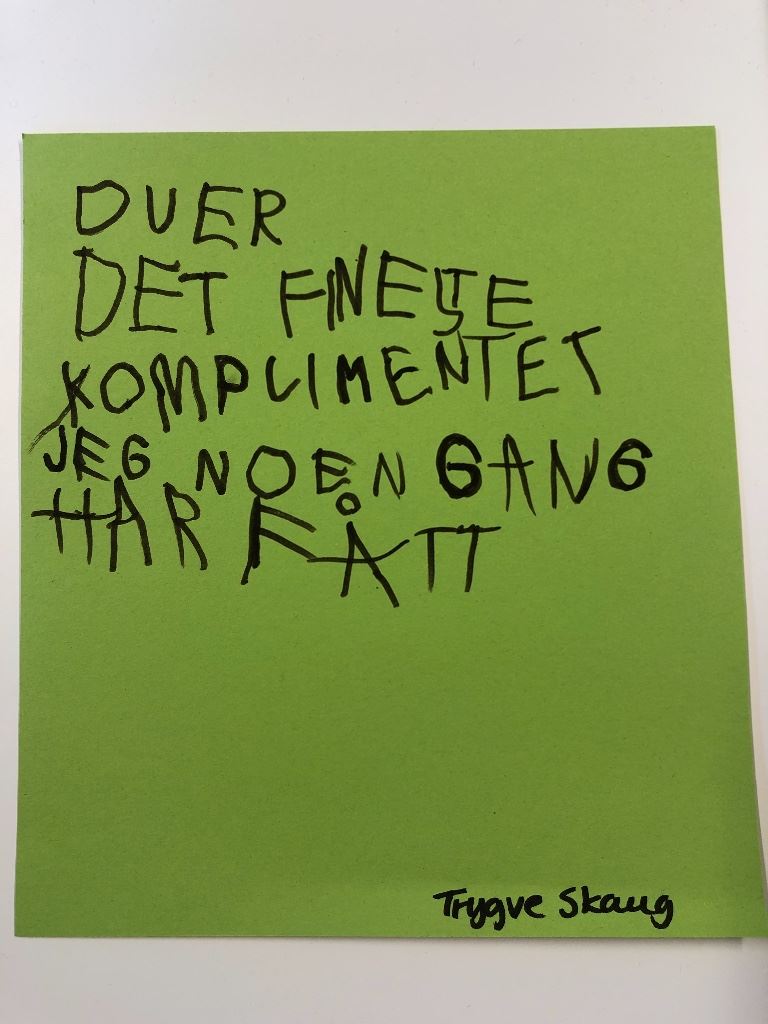 DU ER
DET FINESTE
KOMPLIMENTET
JEG NOEN GANG
HAR FÅTT
Trygve Skaug